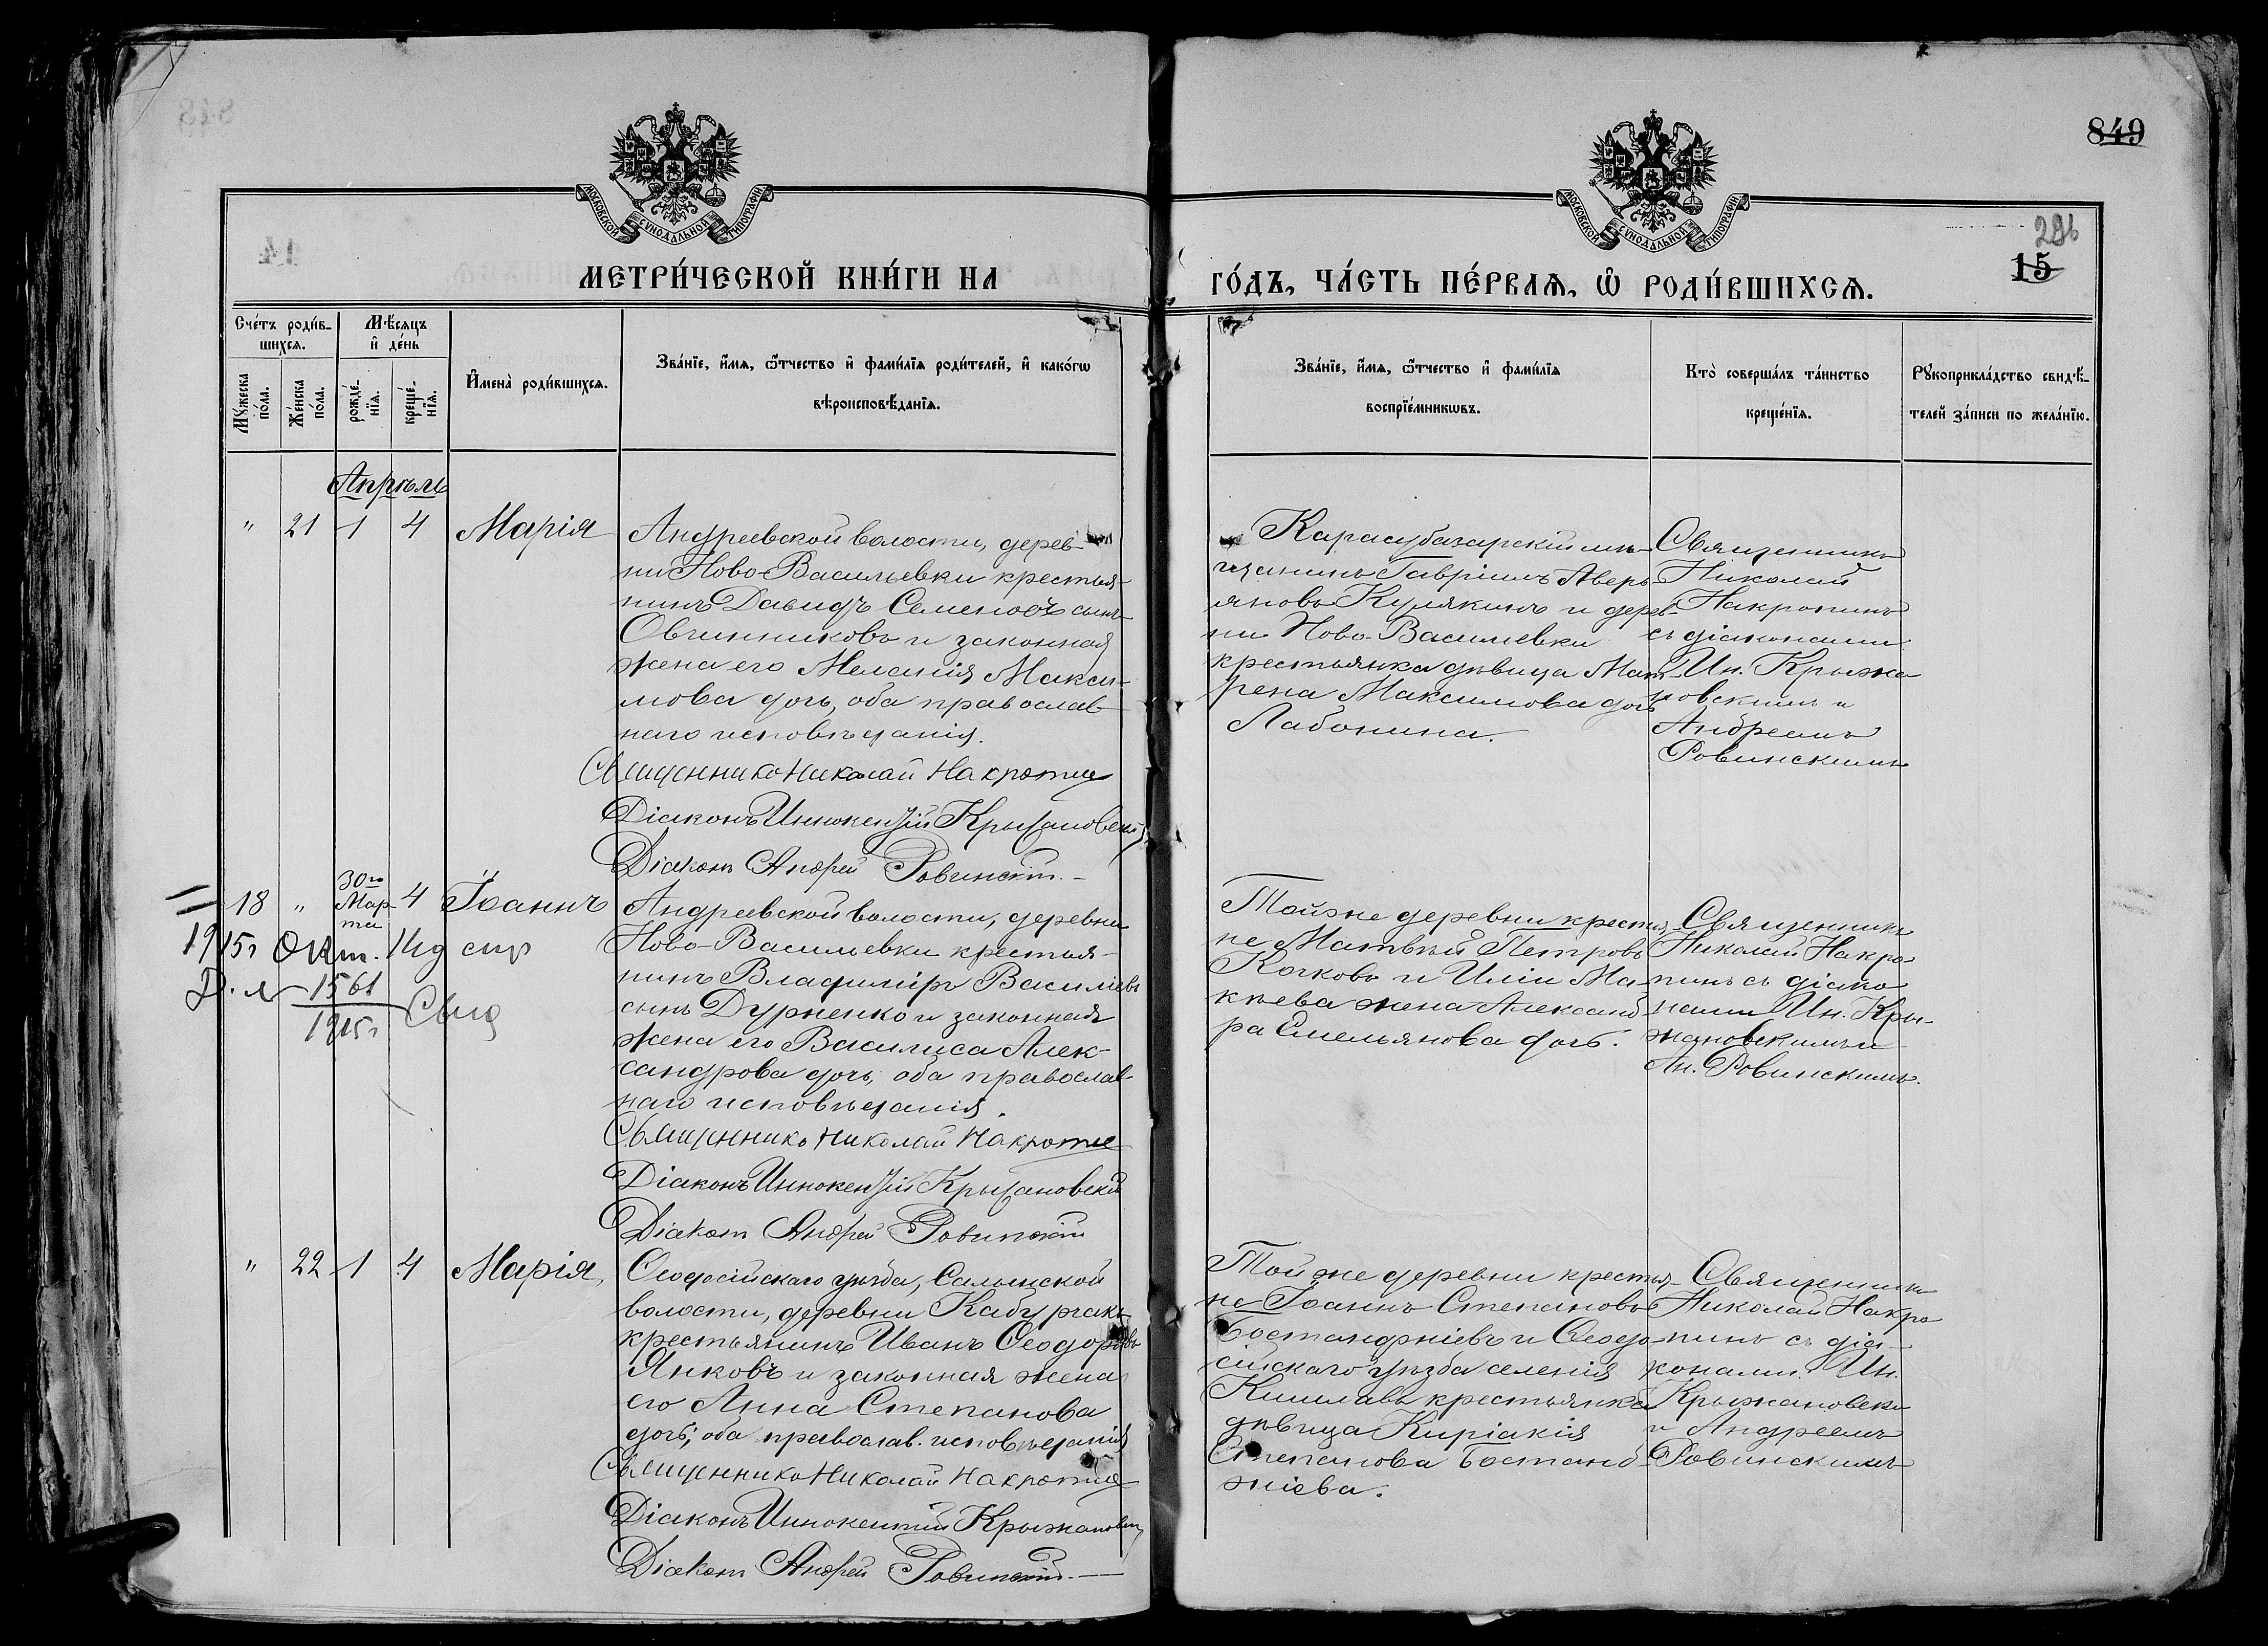 849
296
15
МОСКОВСКОЙ СѴНОДАЛЬНОЙ ТИПОГРАФІИ
МОСКОВСКОЙ СѴНОДАЛЬНОЙ ТИПОГРАФІИ
МЕТРИ́ЧЕСКОЙ КНИ́ГИ НА
ГО́ДЪ, ЧА́СТЬ ПЕ́РВАѦ, Ѡ҆ РОДИ́ВШИХСѦ.
Сче́тъ роди́в-
шихсѧ.
Мѣ́сѧцъ
и҆ де́нь
Мꙋ́жеска
по́ла.
Же́нска
по́ла.
рожде́-
нїѧ.
креще́-
нїѧ.
И҆мена̀ роди́вшихсѧ.
Зва́нїе, и҆́мѧ, ѻ҆́тчество и҆ фами́лїѧ роди́телей, и҆ како́гѡ
вѣроисповѣ́данїѧ.
Зва́нїе, и҆́мѧ, ѻ҆́тчество и҆ фами́лїѧ
воспрїе́мникѡвъ.
Кто̀ соверша́лъ та́инство
креще́нїѧ.
Рꙋкоприкла́дство свидѣ́-
телей за́писи по жела́нїю.
Апрѣль
" 21 1 4 Марія
Андреевской волости, дерев-
ни Ново-Васильевки крестья-
нинъ Давидъ Семеновъ сынъ
Овчинниковъ и законная
жена его Меланія Макси-
мова дочь, оба православ-
наго исповѣданія.
Священникъ Николай Накропин
Діаконъ Иннокентій Крыжановскій
Діаконъ Андрей Ровинскій.
Карасубазарскій мѣ-
щанинъ Гавріилъ Аверь-
яновъ Кулякинъ и дерев-
ни Ново-Василіевки
крестьянка дѣвица Мат-
рена Максимова дочь
Лабонина.
Священникъ
Николай
Накропинъ
съ діаконами
Ин. Крыжа
новскимъ и
Андреемъ
Ровинскимъ
18 " 30го Мар-та 4 Іоаннъ
1915г Окт. 14д
1561
1915г
Андреевской волости, деревни
Ново-Васильевки крестья-
нинъ Владиміръ Василіевъ
сынъ Дурненко и законная
жена его Василиса Алек-
сандрова дочь, оба православ-
наго исповѣданія.
Священникъ Николай Накропин
Діаконъ Иннокентій Крыжановскій
Діаконъ Андрей Ровинскій
Той же деревни крестья-
не Матвѣй Петровъ
Кочковъ и Иліи Ма-
кѣева жена Александ-
ра Емельянова дочь.
Священникъ
Николай Накро-
пинъ съ діако
нами Ин. Кры-
жановскимъ и
Ан. Ровинскимъ.
" 22 1 4 Марія,
Ѳеодосійскаго уѣзда, Салынской
волости, деревни Кабурчакъ
крестьянинъ Иванъ Ѳеодоровъ
Янковъ и законная жена
его Анна Степанова
дочь, оба православ. исповѣданія
Священникъ Николай Накропин
Діаконъ Иннокентій Крыжановскій
Діаконъ Андрей Ровинскій.
Той же деревни крестья-
не Іоаннъ Степановъ
Бостанджіевъ и Ѳеодо-
сійскаго уѣзда селенія
Кишлавъ крестьянка
дѣвица Киріакія
Степанова Бостанд-
жіева.
Священникъ
Николай Накро
пинъ съ діа-
конами Ин.
Крыжановски
и Андреемъ
Ровинскимъ